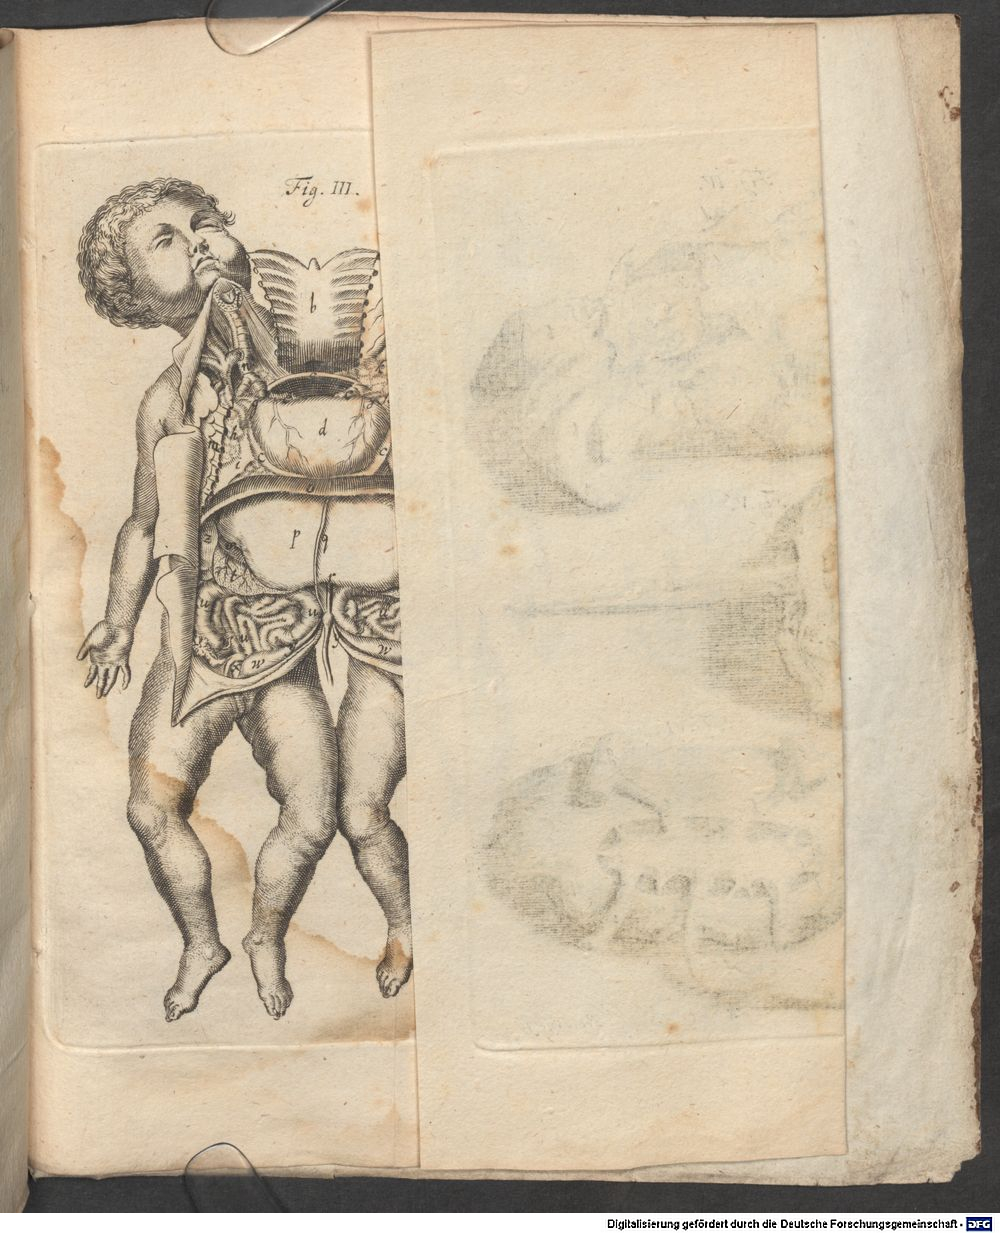 Fig. III.
b
d
c
c
h
i
m
o
p
q
z
t
r
u
u
u
u
w
w
y
Digitalisierung gefördert durch die Deutsche Forschungsgemeinschaft - DFG